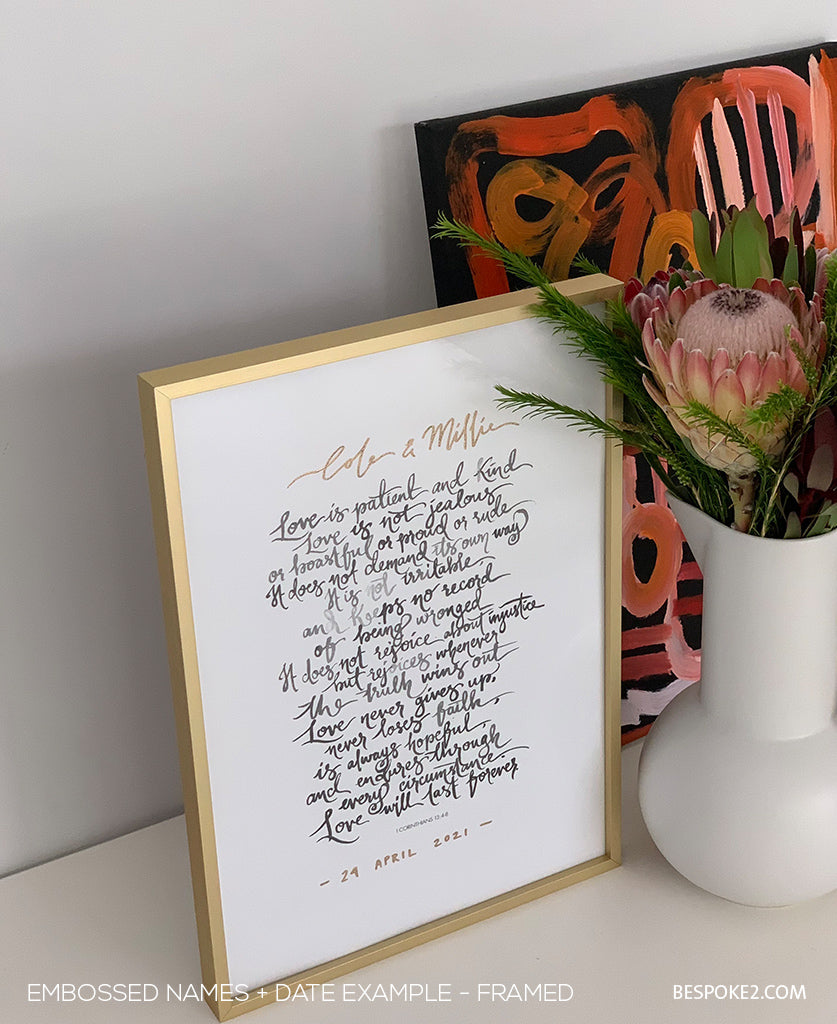 Cole & Millie
Love is patient and kind
Love is not jealous
or boastful or proud or rude
It does not demand its own way
It is not irritable,
and keeps no record
of being wronged
It does not rejoice about injustice
but rejoices whenever
the truth wins out
Love never gives up,
never loses faith,
is always hopeful,
and endures through
every circumstance
Love will last forever
1 CORINTHIANS 13:4-8
- 24 APRIL 2021 -
EMBOSSED NAMES + DATE EXAMPLE - FRAMED
BESPOKE2.COM